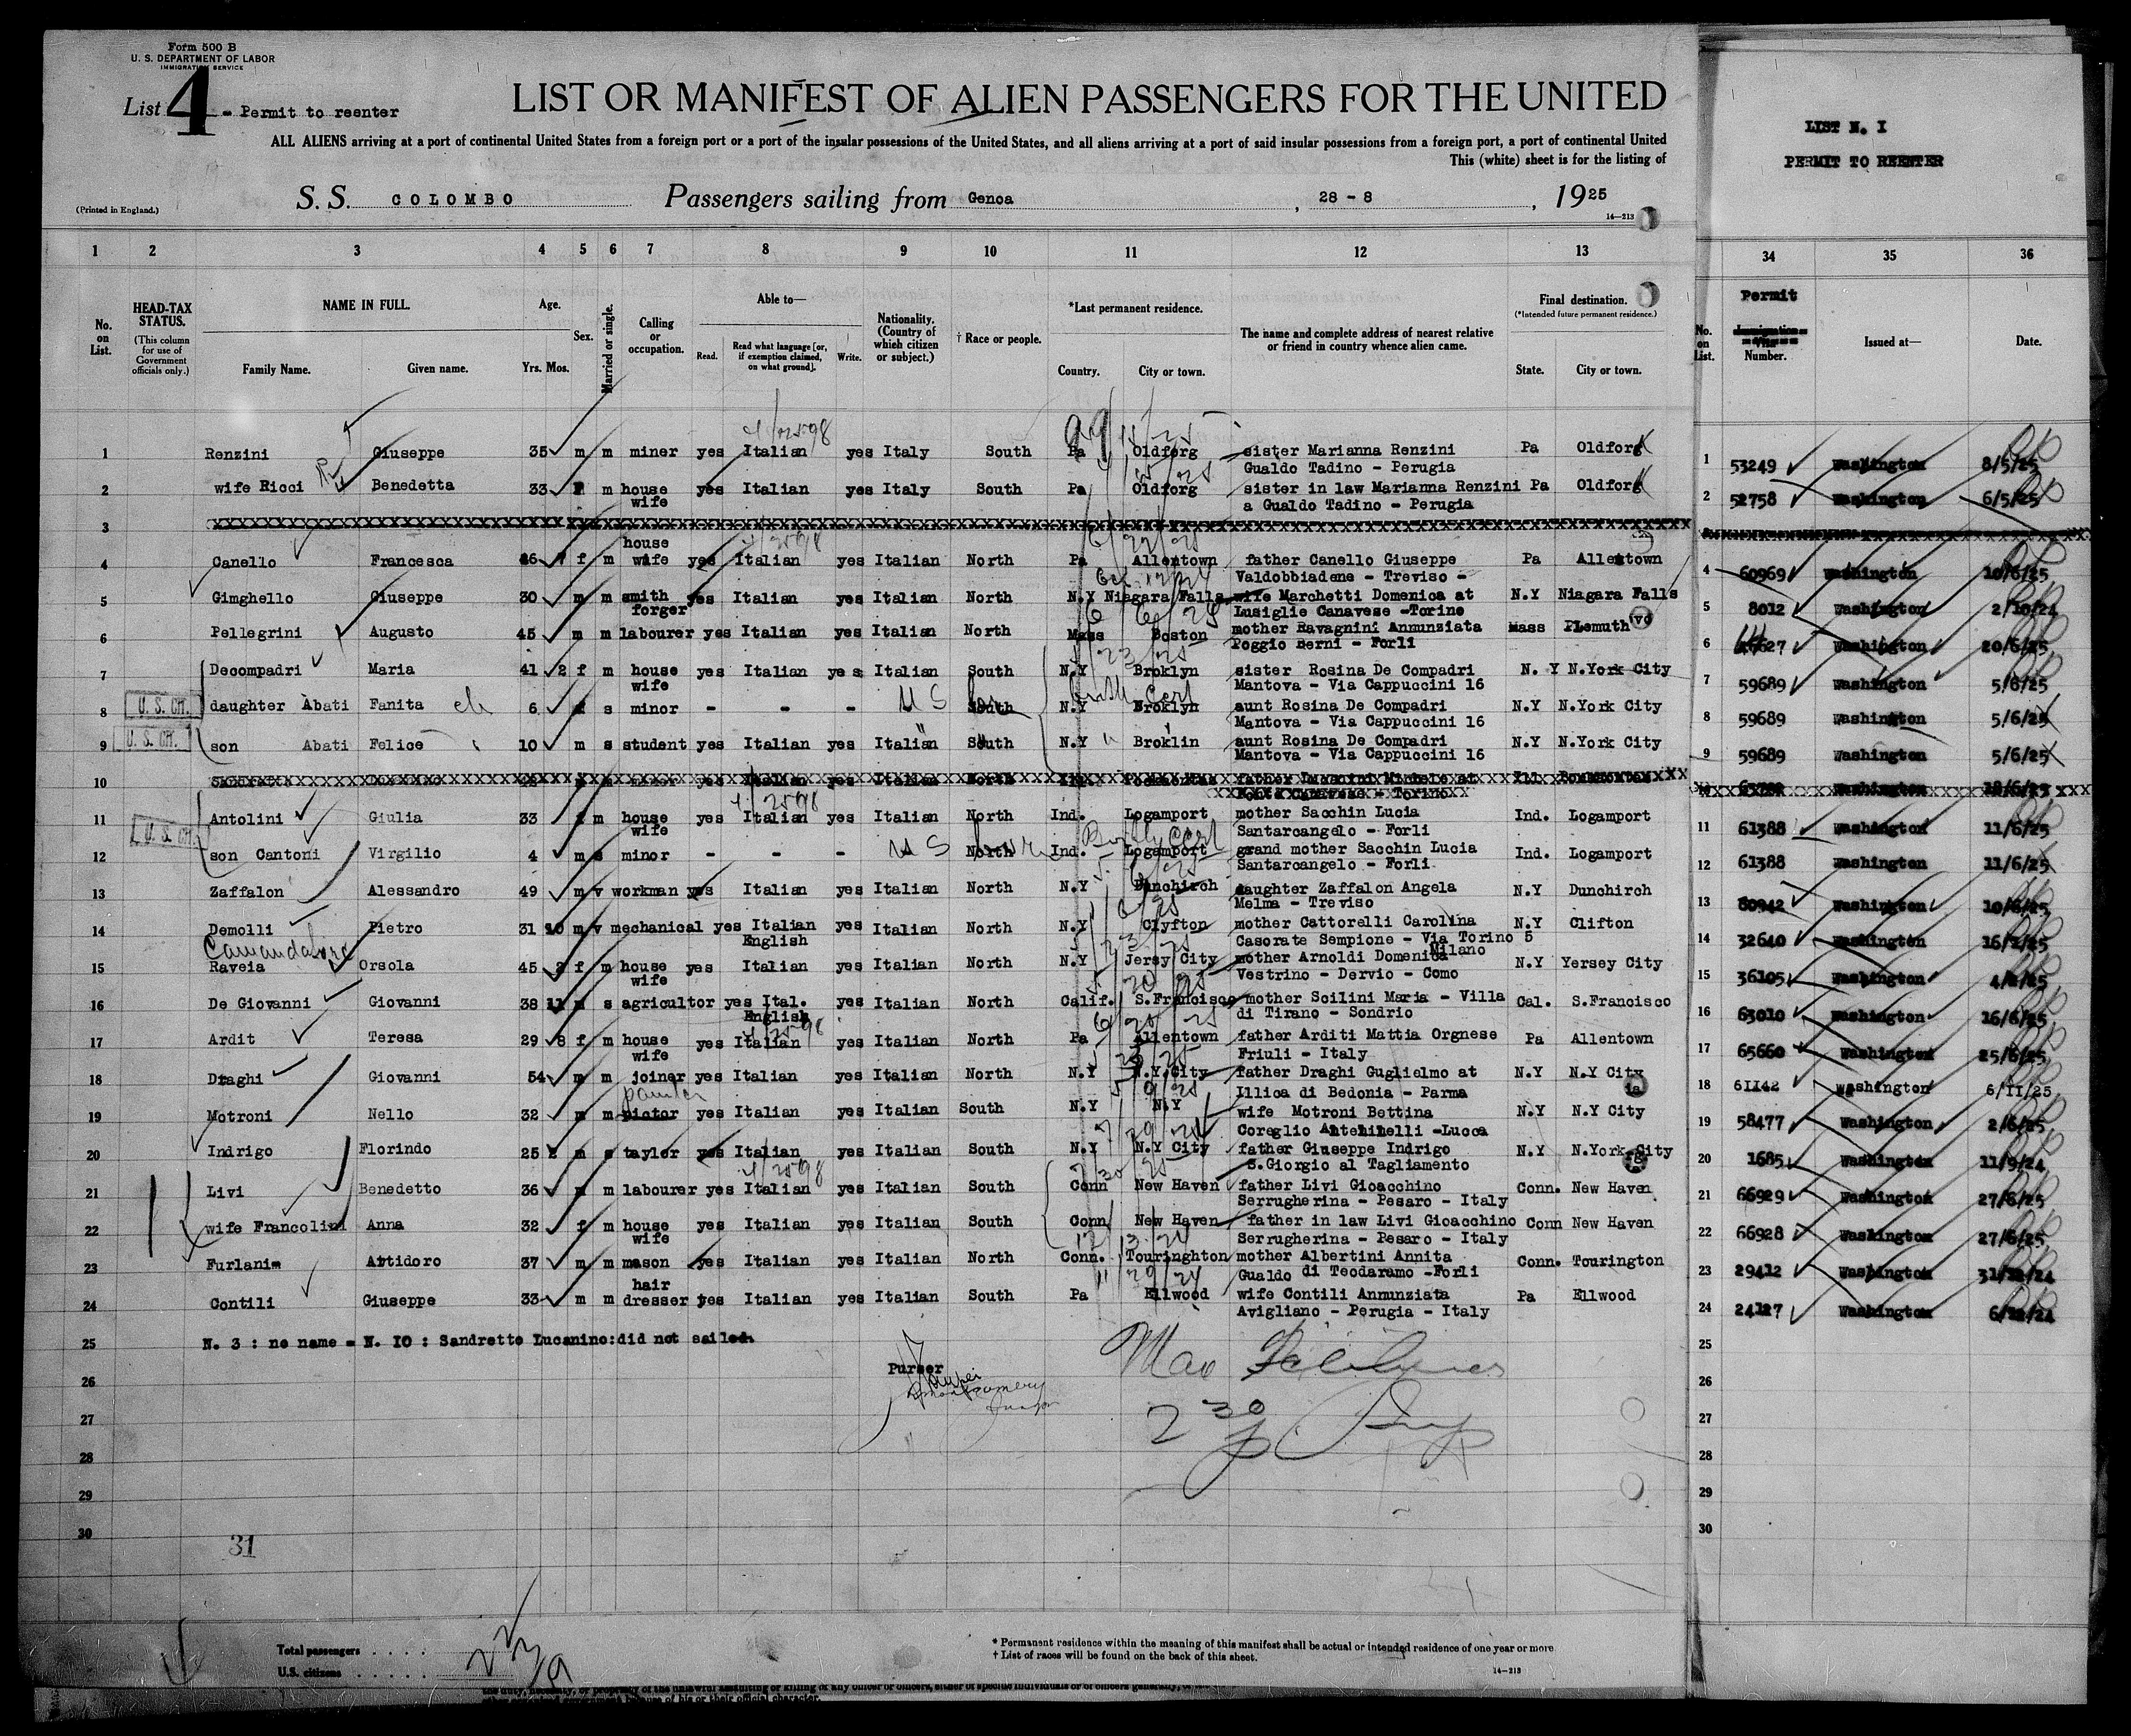 Form 500 B
U. S. DEPARTMENT OF LABOR
IMMIGRATION SERVICE
List 4 - Permit to reenter
LIST OR MANIFEST OF ALIEN PASSENGERS FOR THE UNITED
ALL ALIENS arriving at a port of continental United States from a foreign port or a port of the insular possessions of the United States, and all aliens arriving at a port of said insular possessions from a foreign port, a port of continental United
This (white) sheet is for the listing of
LIST N. I
PERMIT TO REENTER
(Printed in England.)
S. S. COLOMBO Passengers sailing from Genoa, 28 - 8, 1925
14-213
1 2 3 4 5 6 7 8 9 10 11 12 13 34 35 36
No. on List.
HEAD-TAX STATUS.
(This column for use of Government officials only.)
NAME IN FULL.
Family Name. Given name.
Age.
Yrs. Mos.
Sex.
Married or single.
Calling or occupation.
Able to—
Read. Read what language [or, if exemption claimed, on what ground]. Write.
Nationality. (Country of which citizen or subject.)
† Race or people.
*Last permanent residence.
Country. City or town.
The name and complete address of nearest relative or friend in country whence alien came.
Final destination.
(*Intended future permanent residence.)
State. City or town.
No. on List.
Permit Number.
Issued at—
Date.
1 Renzini Giuseppe 35 m m miner yes Italian yes Italy South Pa Oldforg sister Marianna Renzini Pa Oldforg 1 53249 Washington 8/5/25
Gualdo Tadino - Perugia
2 wife Ricci Benedetta 33 m house yes Italian yes Italy South Pa Oldforg sister in law Marianna Renzini Pa Oldforg 2 52758 Washington 6/5/25
wife a Gualdo Tadino - Perugia
3
house
4 Canello Francesca f m wife yes Italian yes Italian North Pa Allentown father Canello Giuseppe Pa Allentown 4 60969 Washington 10/6/25
Valdobbiadene - Treviso -
5 Gimghello Giuseppe 30 m m smith yes Italian yes Italian North N.Y Niagara Falls wife Marchetti Domenica at N.Y Niagara Falls 5 8012 Washington 2/10/24
forger Lusiglie Canavese -Torino
6 Pellegrini Augusto 45 m m labourer yes Italian yes Italian North Mass Boston mother Ravagnini Annunziata Mass Plemuth 6 Washington 20/6/25
Poggio Berni - Forli
7 Decompadri Maria 41 2 f m house yes Italian yes Italian South N.Y Broklyn sister Rosina De Compadri N. Y N.York City 7 59689 Washington 5/6/25
wife Mantova - Via Cappuccini 16
8 U. S. daughter Abati Fanita 6 s minor - - - U S South N.Y Broklyn aunt Rosina De Compadri N.Y N.York City 8 59689 Washington 5/6/25
Mantova - Via Cappuccini 16
9 U. S. son Abati Felice 10 m s student yes Italian yes Italian South N.Y Broklin aunt Rosina De Compadri N.Y N.York City 9 59689 Washington 5/6/25
Mantova - Via Cappuccini 16
10
11 Antolini Giulia 33 f m house yes Italian yes Italian North Ind. Logamport mother Sacchin Lucia Ind. Logamport 11 61388 Washington 11/6/25
wife Santarcangelo - Forli
12 U. S. son Cantoni Virgilio 4 m s minor - - - U S North Ind. Logamport grand mother Sacchin Lucia Ind. Logamport 12 61388 Washington 11/6/25
Birth Cert Santarcangelo - Forli
13 Zaffalon Alessandro 49 m v workman yes Italian yes Italian North N.Y Dunchirch daughter Zaffalon Angela N.Y Dunchirch 13 60942 Washington 10/6/25
Melma - Treviso
14 Demolli Pietro 31 10 m v mechanical yes Italian yes Italian North N.Y Clyfton mother Cattorelli Carolina N.Y Clifton 14 32640 Washington
English Casorate Sempione - Via Torino 5 Milano
15 Raveia Orsola 45 f m house yes Italian yes Italian North N.Y Jersy City mother Arnoldi Domenica N.Y Yersey City 15 36105 Washington
wife Vestrino - Dervio - Como
16 De Giovanni Giovanni 38 11 m s agricultor yes Ital. yes Italian North Calif. S.Francisco mother Scilini Maria - Villa Cal. S.Francisco 16 63010 Washington 16/6/25
English di Tirano - Sondrio
17 Ardit Teresa 29 8 f m house yes Italian yes Italian North Pa Allentown father Arditi Mattia Orgnese Pa Allentown 17 65660 Washington 25/6/25
wife Friuli - Italy
18 Draghi Giovanni 54 m m joiner yes Italian yes Italian North N.Y N.Y.City father Draghi Guglielmo at N.Y N.Y City 18 61142 Washington 6/11/25
painter Illica di Bedonia - Parma
19 Motroni Nello 32 m m pictor yes Italian yes Italian South N.Y N.Y wife Motroni Bettina N.Y N.Y City 19 58477 Washington 2/6/25
Coreglio Antelminelli -Lucca
20 Indrigo Florindo 25 m s taylor yes Italian yes Italian South N.Y N.Y City father Giuseppe Indrigo N.Y N.York City 20 1685 Washington 11/9/24
S.Giorgio al Tagliamento
21 Livi Benedetto 36 m m labourer yes Italian yes Italian South Conn New Haven father Livi Gioacchino Conn. New Haven 21 66929 Washington 27/6/25
Serrugherina - Pesaro - Italy
22 wife Francolini Anna 32 f m house yes Italian yes Italian South Conn New Haven father in law Livi Gioacchino Conn New Haven 22 66928 Washington 27/6/25
wife Serrugherina - Pesaro - Italy
23 Furlani Attidoro 37 m m mason yes Italian yes Italian North Conn. Touringhton mother Albertini Annita Conn. Tourington 23 29412 Washington
hair Gualdo di Teodaramo -Forli
24 Contili Giuseppe 33 m m dresser yes Italian yes Italian South Pa Ellwood wife Contili Annunziata Pa Ellwood 24 24127 Washington
Avigliano - Perugia - Italy
25 N. 3 : no name = N. IO : Sandretto Lucanino:did not sailed 25
Purser
26 26
27 2 30 27
28 28
29 29
30 30
31
Total passengers . . . .
U.S. citizens . . . . .
* Permanent residence within the meaning of this manifest shall be actual or intended residence of one year or more
† List of races will be found on the back of this sheet.
14-213